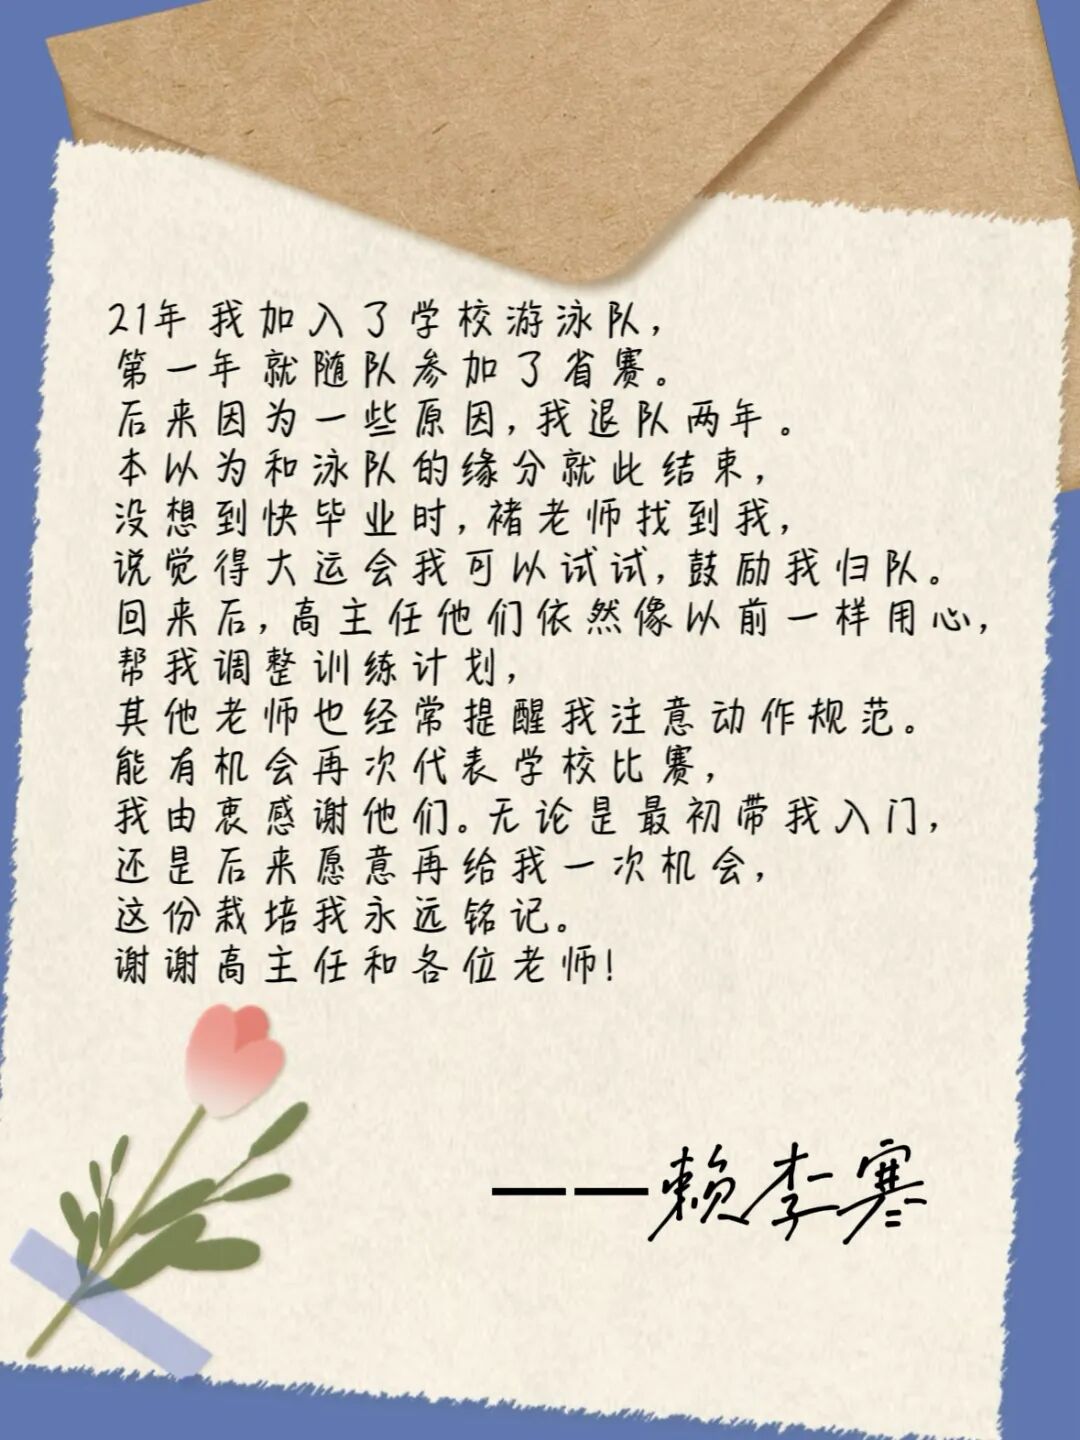 21年我加入了学校游泳队，
第一年就随队参加了省赛。
后来因为一些原因，我退队两年。
本以为和泳队的缘分就此结束，
没想到快毕业时，褚老师找到我，
说觉得大运会我可以试试，鼓励我归队。
回来后，高主任他们依然像以前一样用心，
帮我调整训练计划，
其他老师也经常提醒我注意动作规范。
能有机会再次代表学校比赛，
我由衷感谢他们。无论是最初带我入门，
还是后来愿意再给我一次机会，
这份栽培我永远铭记。
谢谢高主任和各位老师！
——赖李寒